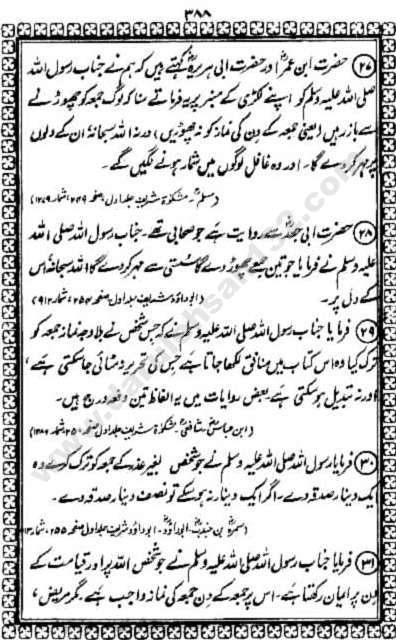 ۳۸۸
(۲۷) حضرت ابن عمرؓ اور حضرت ابی ہریرہؓ کہتے ہیں کہ ہم نے جناب رسول اللہ
صلی اللہ علیہ وسلم کو اپنے لکڑی کے منبر پر یہ فرماتے سنا کہ لوگ جمعہ کو چھوڑنے
سے باز رہیں (یعنی جمعہ کے دن کی نماز کو نہ چھوڑیں) ورنہ اللہ سبحانہٗ ان کے دلوں
پر مہر کر دے گا۔ اور وہ غافل لوگوں میں شمار ہونے لگیں گے۔
(مسلمؒ۔ مشکوٰۃ شریف جلد اول صفحہ ۲۴۹ شمار ۱۲۷۹)
(۲۸) حضرت ابی جعدؓ سے روایت ہے جو صحابی تھے۔ جناب رسول اللہ صلی اللہ
علیہ وسلم نے فرمایا جو تین جمعے چھوڑ دے گا سستی سے مہر کر دے گا اللہ سبحانہٗ اس
کے دل پر۔ (ابو داؤد شریف جلد اول صفحہ ۲۵۴، شمار ۹۱۲)
(۲۹) فرمایا جناب رسول اللہ صلی اللہ علیہ وسلم نے کہ جس شخص نے بلا وجہ نماز جمعہ کو
ترک کیا وہ اس کتاب میں منافق لکھا جاتا ہے جس کی تحریر نہ مٹائی جا سکتی ہے،
اور نہ تبدیل ہو سکتی ہے بعض روایات میں یہ الفاظ تین دفعہ درج ہیں۔
(ابن عباسؓ۔ شافعیؒ۔ مشکوٰۃ شریف جلد اول صفحہ ۲۵۰ شمار ۱۲۸۶)
(۳۰) فرمایا رسول اللہ صلی اللہ علیہ وسلم نے جو شخص بغیر عذر کے جمعہ کو ترک کرے وہ
ایک دینار صدقہ دے۔ اگر ایک دینار نہ ہو سکے تو نصف دینار صدقہ دے۔
(سمرۃ بن جندبؓ۔ ابو داؤدؒ۔ ابو داؤد شریف جلد اول صفحہ ۲۵۵ شمار
(۳۱) فرمایا جناب رسول اللہ صلی اللہ علیہ وسلم نے جو شخص اللہ پر اور قیامت کے
دن پر ایمان رکھتا ہے۔ اس پر جمعہ کے دن جمعہ کی نماز واجب ہے۔ مگر مریض،